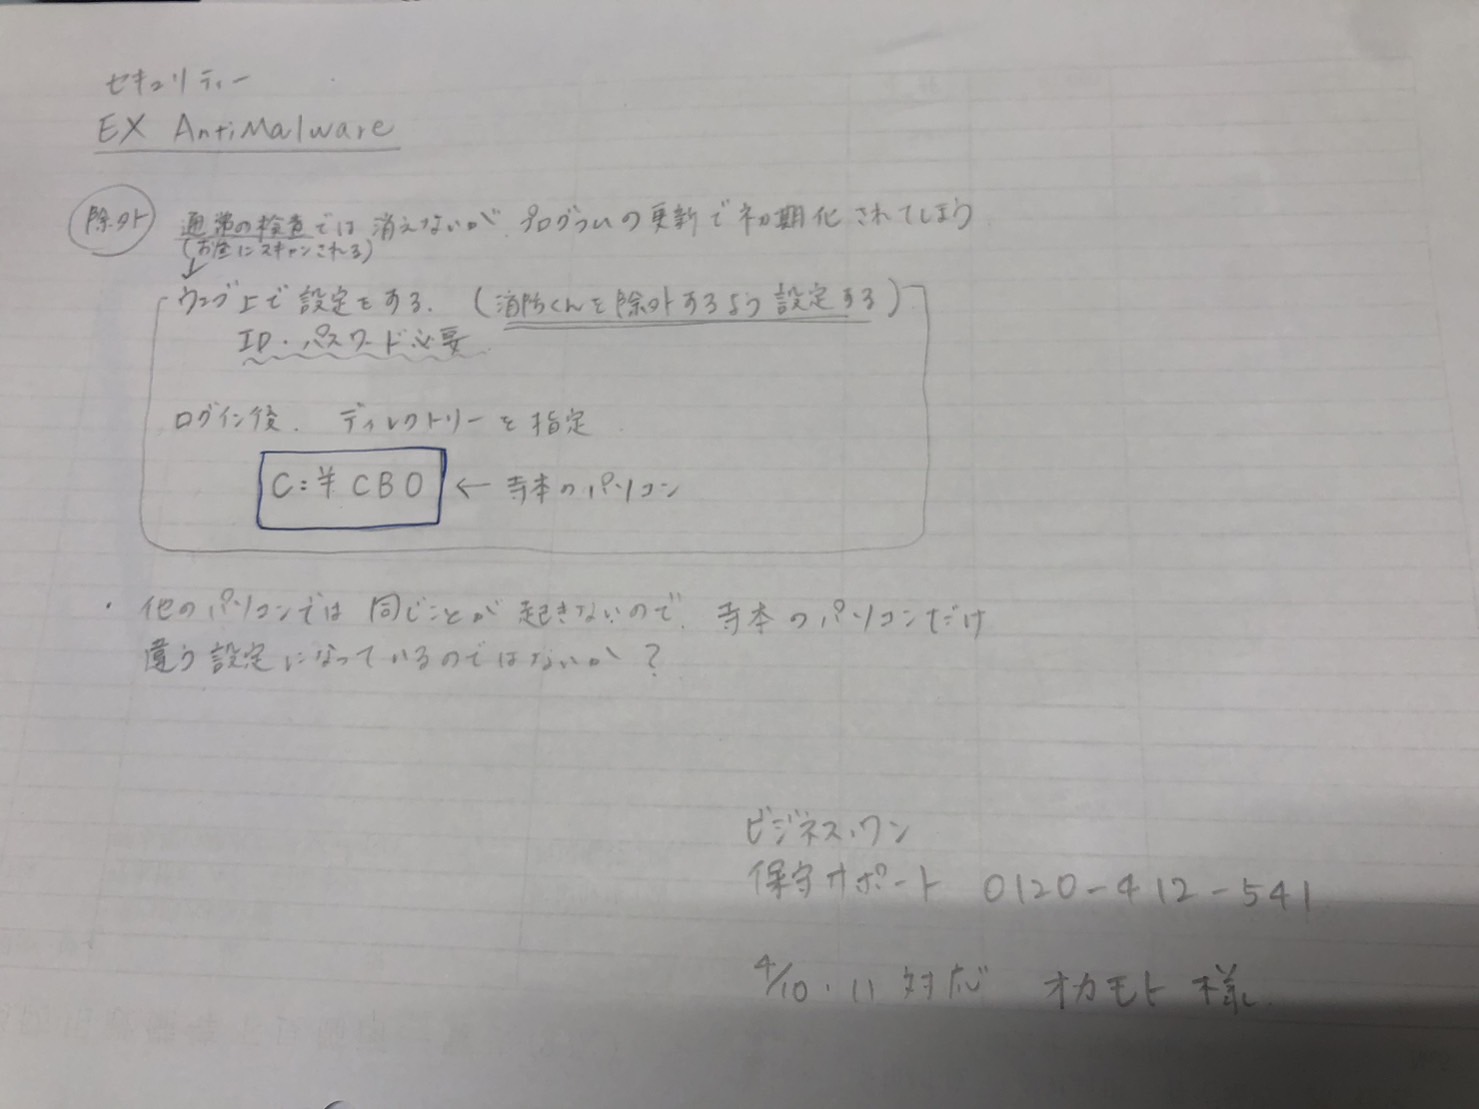 セキュリティー
EX AntiMalware
除外 通常の検査では消えないが、プログラムの更新で初期化されてしまう
(お昼にスキャンされる)
ウェブ上で設定をする。(消防くんを除外するよう設定する)
ID・パスワード必要
ログイン後、ディレクトリーを指定
C:¥CBO ← 寺本のパソコン
・他のパソコンでは同じことが起きないので、寺本のパソコンだけ
違う設定になっているのではないか?
ビジネス・ワン
保守サポート 0120-412-541
4/10・11 対応 オカモト様